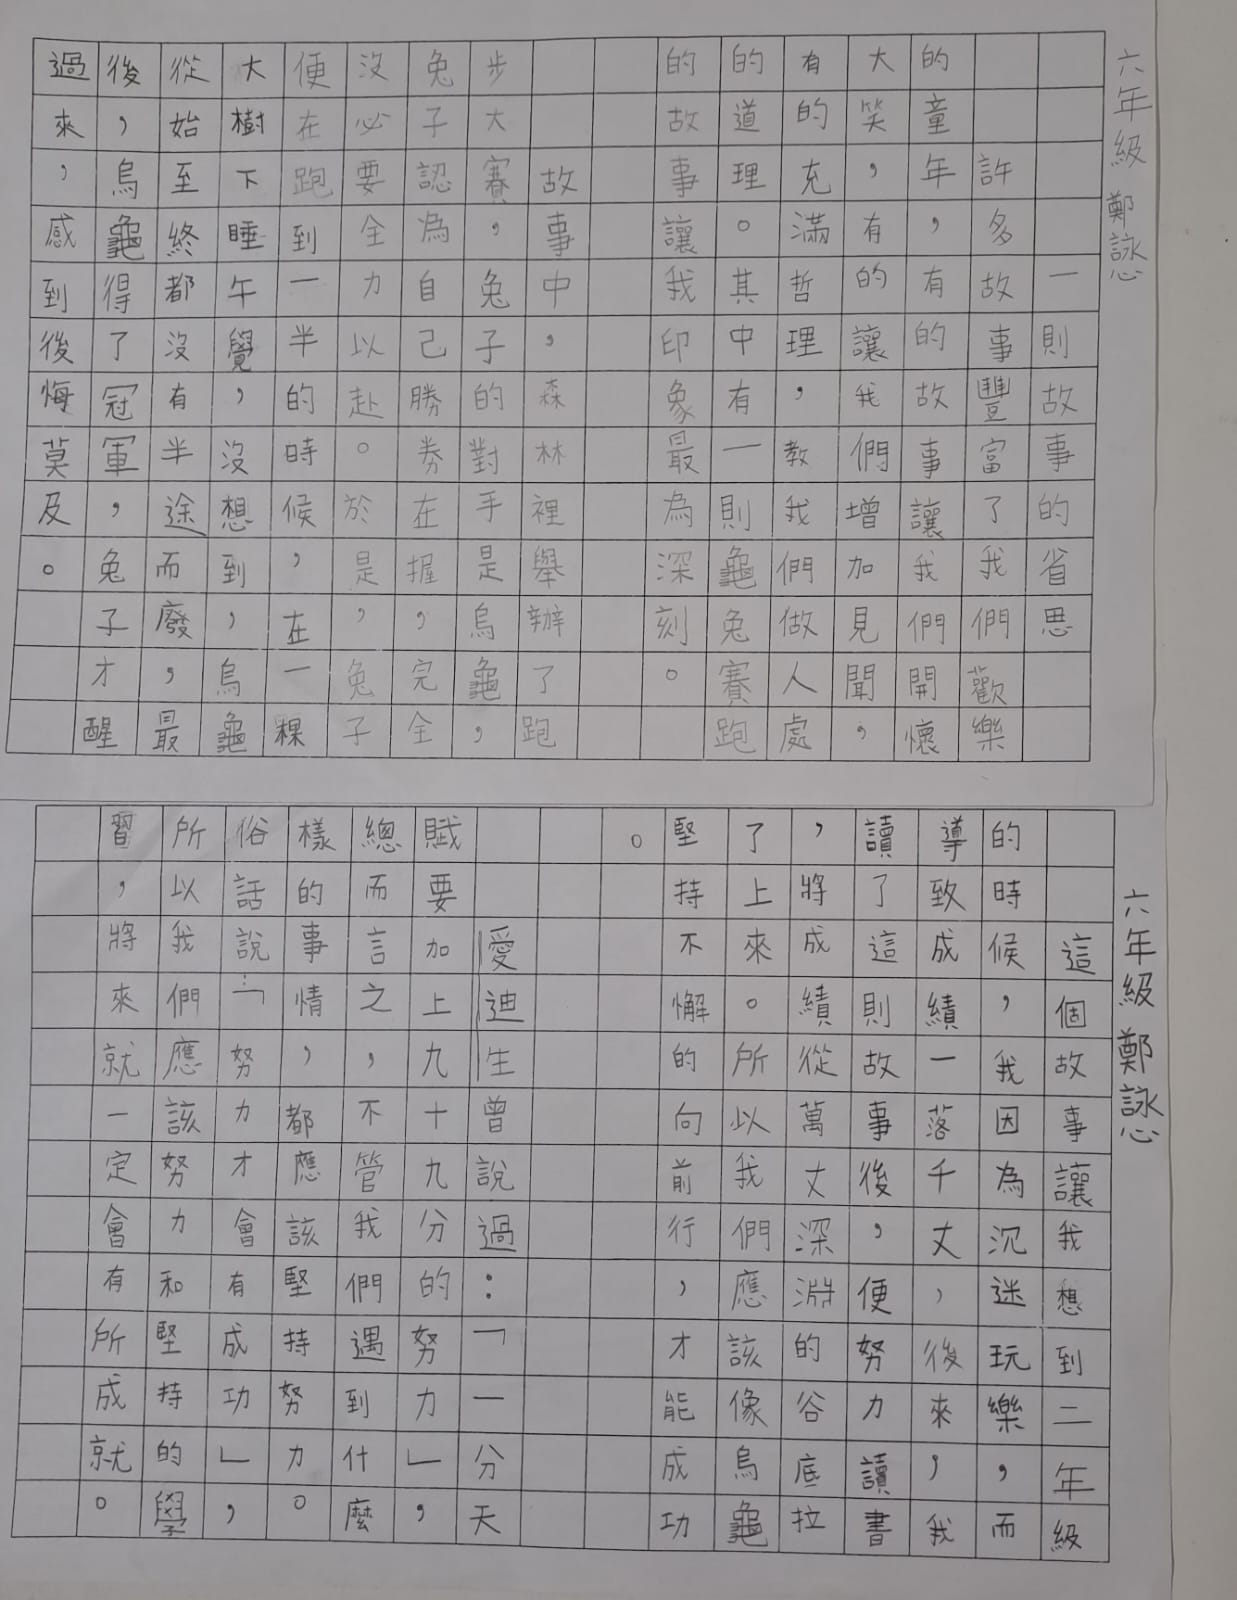 六年級 鄭詠心
一則故事的省思
許多故事豐富了我們歡樂
的童年,有的故事讓我們開懷
大笑,有的讓我們增加見聞,
有的充滿哲理,教我們做人處
的道理。其中有一則龜兔賽跑
的故事讓我印象最為深刻。
故事中,森林裡舉辦了跑
步大賽,兔子的對手是烏龜,
兔子認為自己勝券在握,完全
沒必要全力以赴。於是,兔子
便在跑到一半的時候,在一粿
大樹下睡午覺,沒想到,烏龜
從始至終都沒有半途而廢,最
後,烏龜得了冠軍,兔子才醒
過來,感到後悔莫及。
六年級 鄭詠心
這個故事讓我想到二年級
的時候,我因為沉迷玩樂,而
導致成績一落千丈,後來,我
讀了這則故事後,便努力讀書
,將成績從萬丈深淵的谷底拉
了上來。所以我們應該像烏龜
堅持不懈的向前行,才能成功
。
愛迪生曾說過:「一分天
賦要加上九十九分的努力」,
總而言之,不管我們遇到什麼
樣的事情,都應該堅持努力。
俗話說:「努力才會有成功」,
所以我們應該努力和堅持的學
習,將來就一定會有所成就。